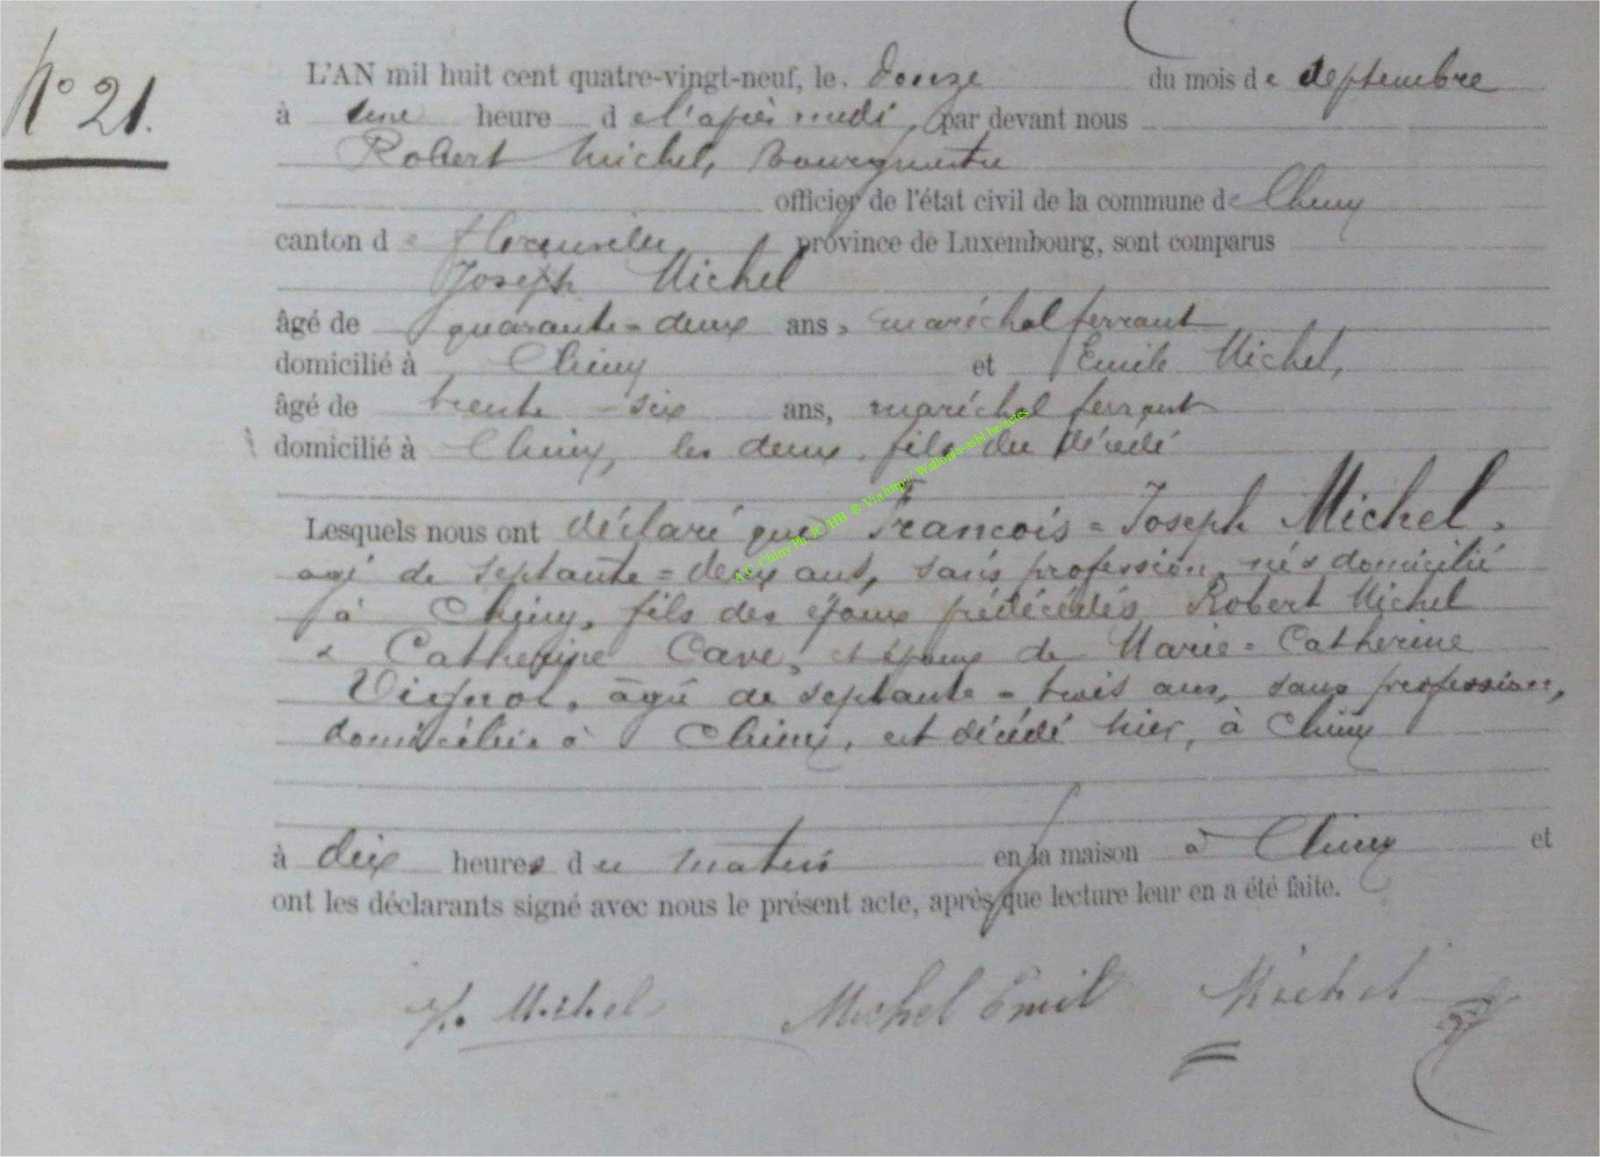 N° 21.
L'AN mil huit cent quatre-vingt-neuf, le douze du mois de septembre
à une heure de l'après midi, par devant nous
Robert Michel, Bourgmestre
officier de l'état civil de la commune de Chiny
canton de Florenville, province de Luxembourg, sont comparus
Joseph Michel
âgé de quarante=deux ans, maréchal ferrant
domicilié à Chiny et Emile Michel,
âgé de trente-six ans, maréchal ferrant
domicilié à Chiny, les deux fils du décédé
Lesquels nous ont déclaré que François=Joseph Michel,
agé de septante=deux ans, sans profession, né & domicilié
à Chiny, fils des époux prédécédés Robert Michel
& Catherine Cave, et époux de Marie=Catherine
Vignol, âgée de septante=trois ans, sans profession,
domiciliée à Chiny, est décédé hier, à Chiny
à dix heures du matin en la maison à Chiny et
ont les déclarants signé avec nous le présent acte, après que lecture leur en a été faite.
Michel Michel Emil Michel